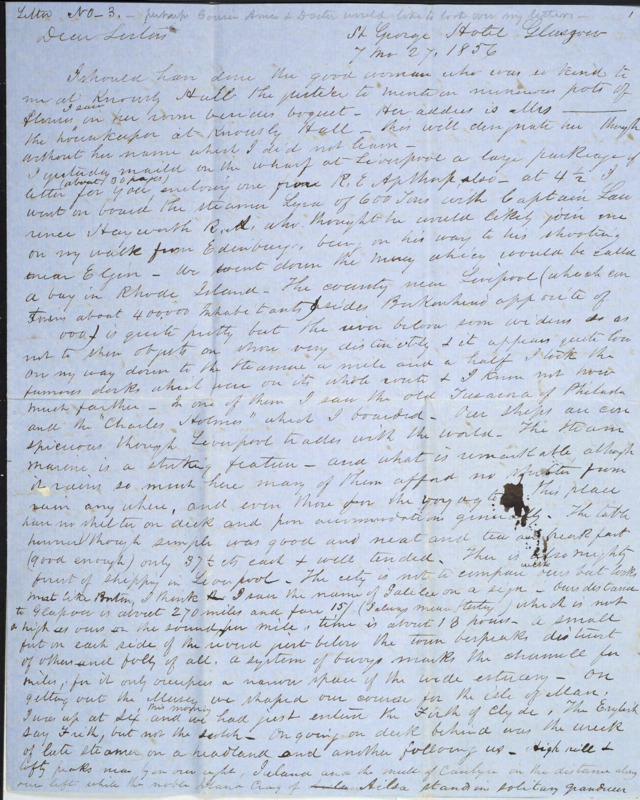 Letter No - 3. - perhaps Cousin Anna & Doctor would like to look over my letters -
Dear Sister St George Hotel Glasgow
7 mo 27, 1856
I should have done the good woman who was so kind to
me at Knowsly Hall the justice to mention numerous pots of
flowers I saw in her room besides boquet - Her address is Mrs
the housekeeper at Knowsly Hall - this will designate her though
without her name which I did not learn -
I yesterday mailed on the wharf at Liverpool a large package of
letter for you (about 30 pages) enclosing one from R. E. Apthorp also - at 4½ I
went on board the steamer Lyra of 600 Tons with Captain Law
rence Heyworth who thought he would likely join me
on my walk from Edenburg, being on his way to his shooting
near Elgin - We went down the Mersey which would be called
a bay in Rhode Island - The country near Liverpool (which con
tains about 400000 Inhabitants besides Berkenhead opposite of
000) is quite pretty but the river below soon widens so as
not to show objects on shore very distinctly & it appears quite low
on my way down to the Steamer a mile and a half I took the
famous docks which were on its whole route & I know not how
much farther - In one of them I saw the old Tuscarora of Philada
and the "Charles Holmes" which I boarded - Our ships are con
spicuous though Liverpool trades with the world - The steam
marine is a striking feature - and what is remarkable although
it rains so much here many of them afford no shelter from
rain any where, and even those for the voyage to this place
have no shelter on deck and poor accommodation generally. The table
however though simple was good and neat and tea and breakfast
(good enough) only 37½ cts each & well tended. There is
forest of shipping in Liverpool - The city is not to compare with ours but looks
most like Boston I think & I saw the name of on a sign - our distance
to Glasgow is about 270 miles and fare 15/ (I always mean sterling) which is not
so high as ours on the sound per mile, time is about 18 hours - A small
fort on each side of the river just below the town bespeaks distrust
of others and folly of all. A system of buoys marks the channel for
miles, for it only occupies a narrow space of the wide estuary - On
getting out the Mersey we shaped our course for the isle of Man,
I was up at six this morning and we had just entered the Firth of Clyde, The English
say Frith, but not the Scotch - On going on deck behind was the wreck
of late steamer on a headland and another following us - High hills &
lofty peaks near you on our right, Ireland and the mull of Cantyre in the distance along
our left while the noble Craig of Ailsa stands in solitary grandeur